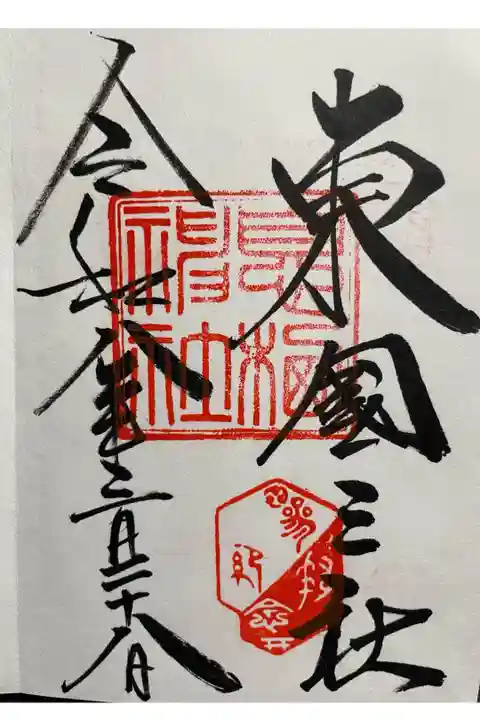 東國三社
令和八年二月二十八日
息栖
神社